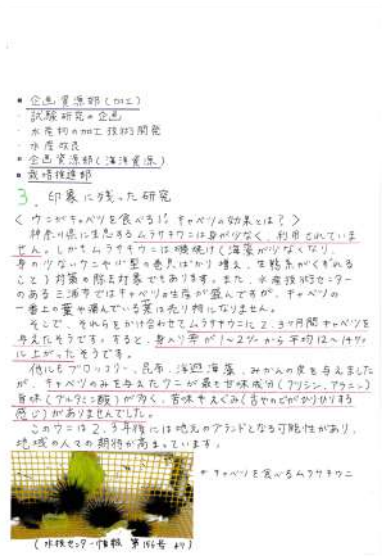 ▪ 企画資源部(加工)
・ 試験研究の企画
・ 水産物の加工技術開発
・ 水産改良
▪ 企画資源部(海洋資源)
▪ 栽培推進部
3. 印象に残った研究
<ウニがキャベツを食べる!? キャベツの効果とは?>
神奈川県に生息するムラサキウニは身が少なく、利用されていま
せん。しかもムラサキウニは磯焼け(海藻が少なくなり、
身の少ないウニや小型の巻貝ばかり増え、生態系がくずれる
こと)対策の除去対象でもあります。また、水産技術センター
のある三浦市ではキャベツの生産が盛んですが、キャベツの
一番上の葉や傷んでいる葉は売り物になりません。
そこで、それらをかけ合わせてムラサキウニに2、3ヶ月間キャベツを
与えたそうです。すると、身入り率が1〜2%から平均12〜14%
に上がったそうです。
他にもブロッコリー、昆布、流遊海藻、みかんの皮を与えました
が、キャベツのみを与えたウニが最も甘味成分(グリシン、アラニン)
旨味(グルタミン酸)が多く、苦味やえぐみ(舌やのどがかりかりする
感じ)がありませんでした。
このウニは2、3年後には地元のブランドとなる可能性があり、
地域の人々の期待が高まっています。
キャベツを食べるムラサキウニ
(水技センター情報 第156号 より)